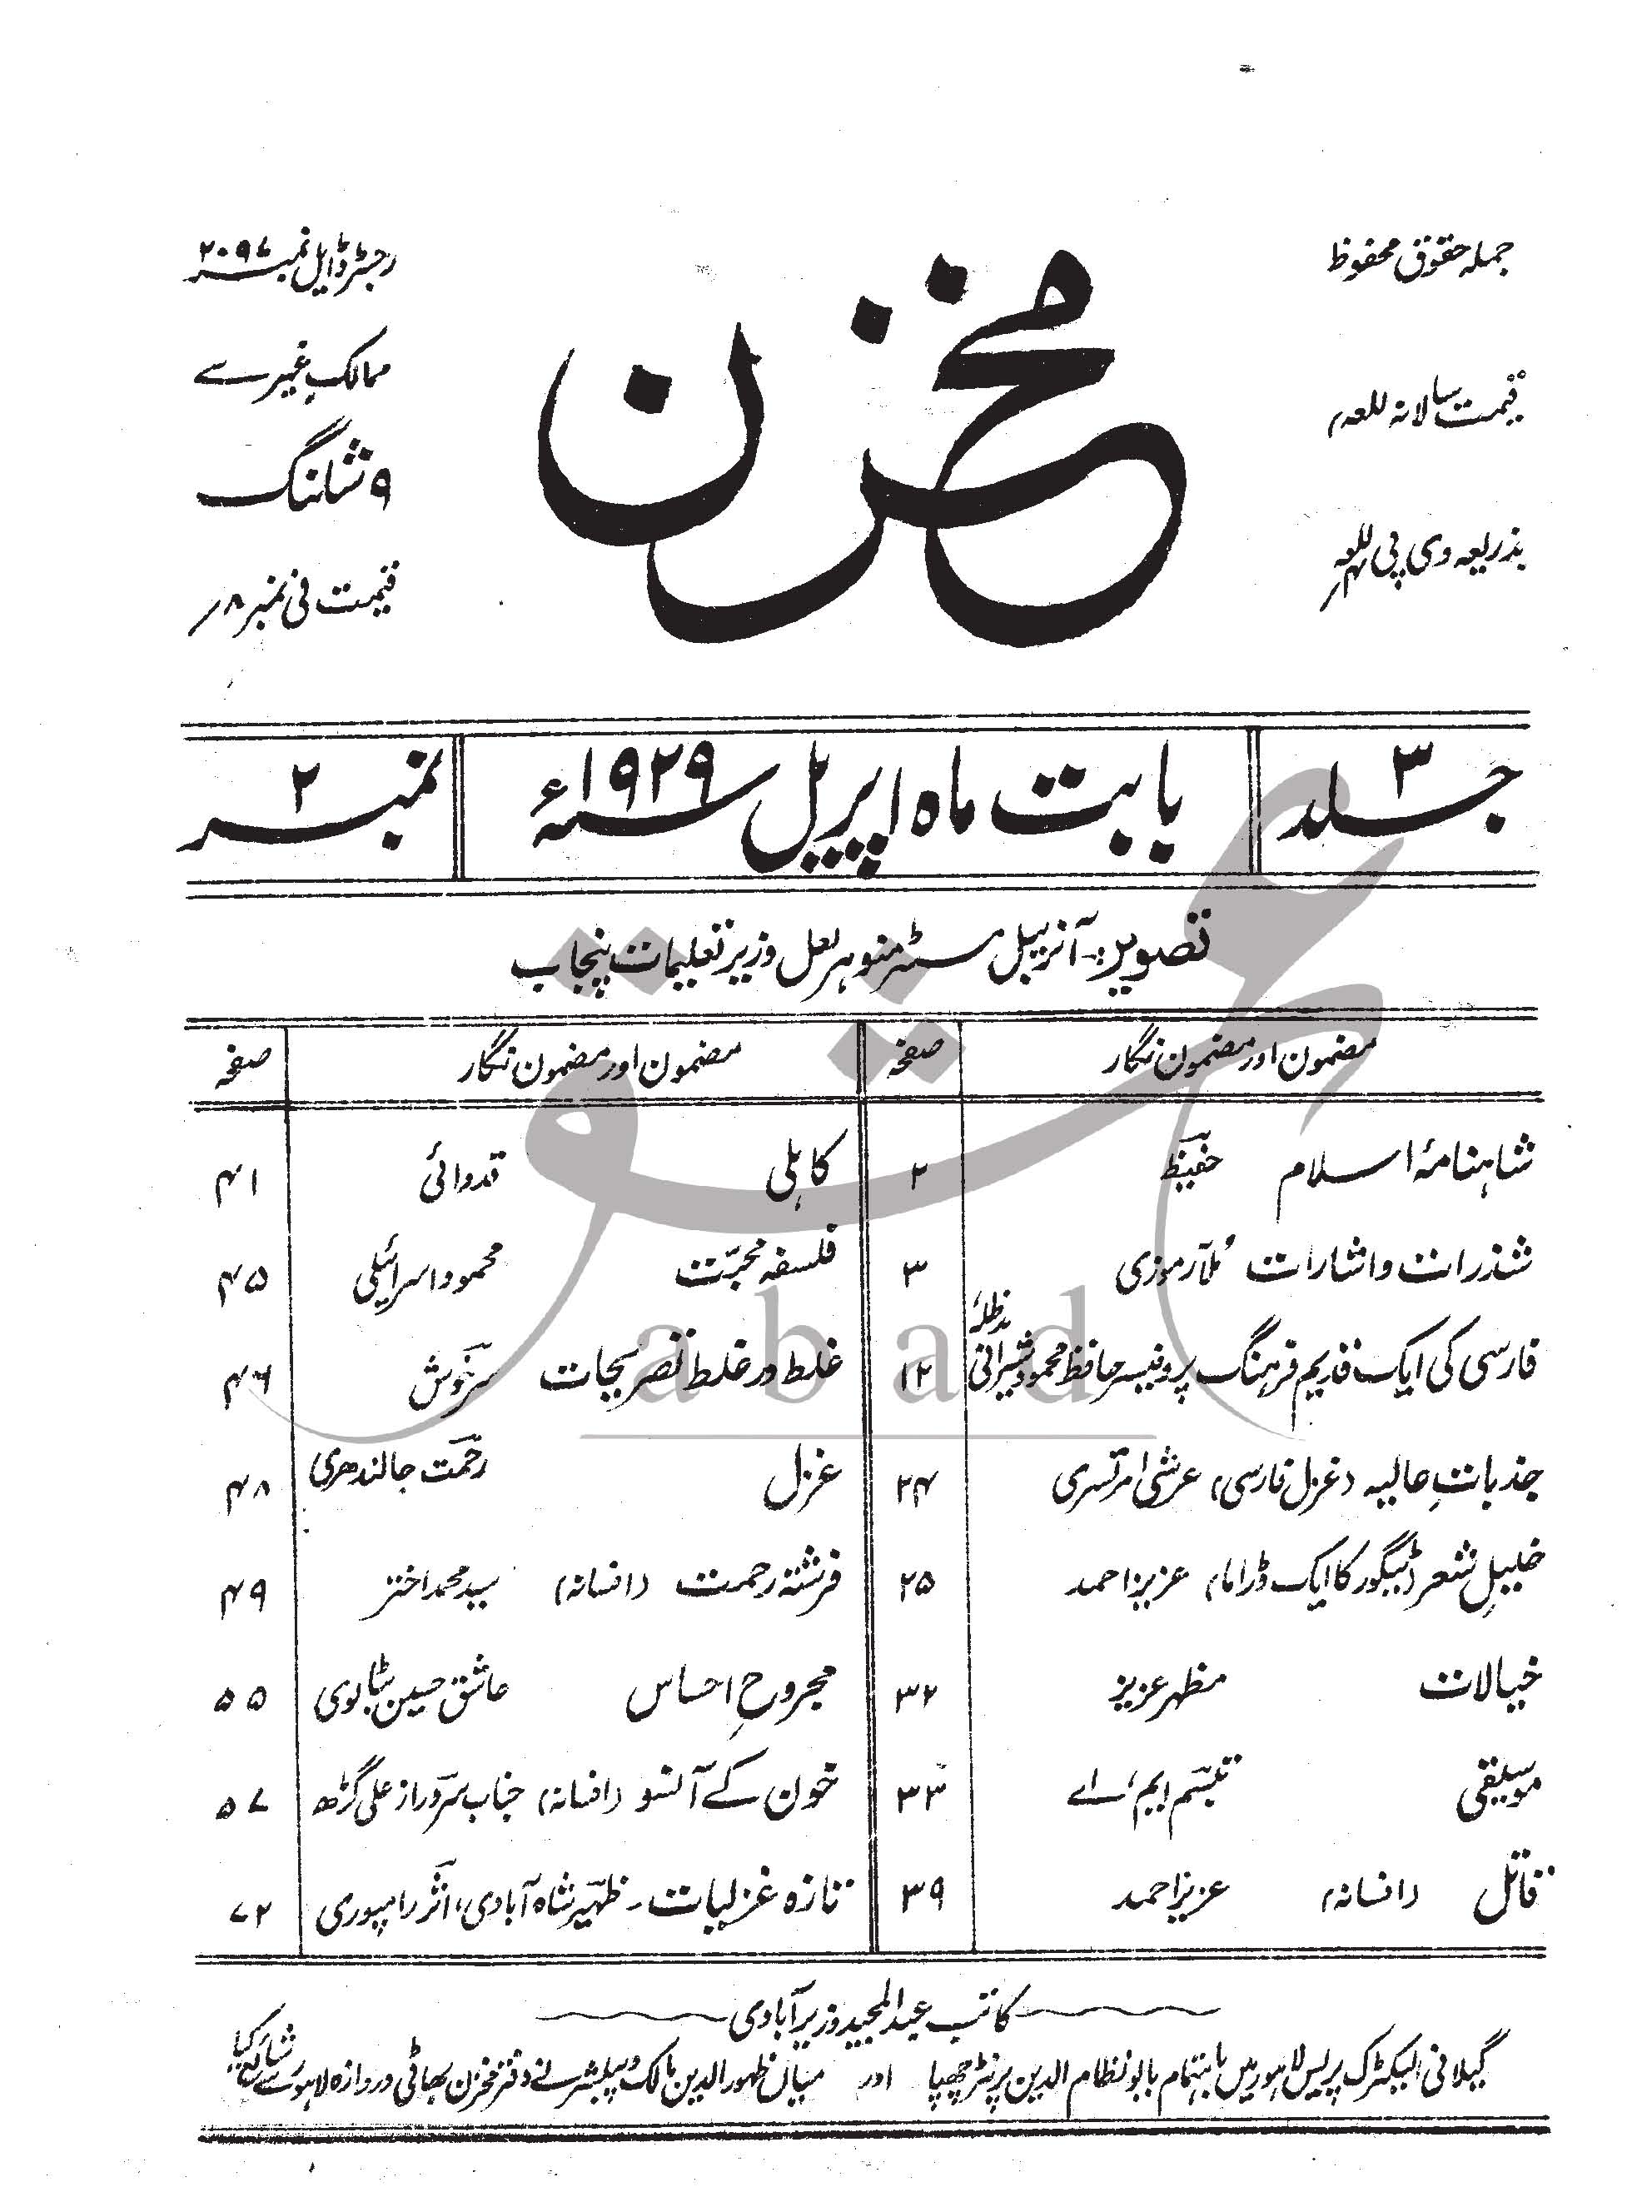 جملہ حقوق محفوظ
قیمت سالانہ للعہ
بذریعہ وی پی للعہ
مخزن
رجسٹرڈ ایل نمبر ۲۰۹۷
ممالک غیر سے
۹ شلنگ
قیمت فی نمبر ۸؍
جلد ۳
بابت ماہ اپریل ۱۹۲۹ء
نمبر ۲
تصویر:۔ آنریبل مسٹر منوہر لعل وزیر تعلیمات پنجاب
مضمون اور مضمون نگار صفحہ
شاہنامۂ اسلام حفیظ ۲
شذرات و اشارات مُلّا رموزی ۳
فارسی کی ایک قدیم فرہنگ پروفیسر حافظ محمود شیرانی مدظلہٗ ۱۲
جذباتِ عالیہ (غزل فارسی) عرشی امرتسری ۲۴
خلیلِ شعر (ٹیگور کا ایک ڈراما) عزیز احمد ۲۵
خیالات مظہر عزیز ۳۲
موسیقی تبسّم ایم، اے ۳۳
قاتل (افسانہ) عزیز احمد ۳۹
مضمون اور مضمون نگار صفحہ
کاہلی قدوائی ۴۱
فلسفہ محبّت محمود اسرائیلی ۴۵
غلط در غلط تصریحات سرخوش ۴۶
غزل رحمت جالندھری ۴۸
فرشتہ رحمت (افسانہ) سید محمد اختر ۴۹
مجروحِ احساس عاشق حسین بٹالوی ۵۵
خون کے آنسو (افسانہ) جناب سرور از علی گڑھ ۵۷
تازہ غزلیات۔ ظہیر شاہ آبادی، اثر رامپوری ۷۲
کاتب عبدالمجید وزیرآبادی
گیلانی الیکٹرک پریس لاہور میں باہتمام بابو نظام الدین پرنٹر چھپا اور میاں ظہور الدین مالک و پبلشر نے دفتر مخزن بھاٹی دروازہ لاہور سے شائع کیا
abad